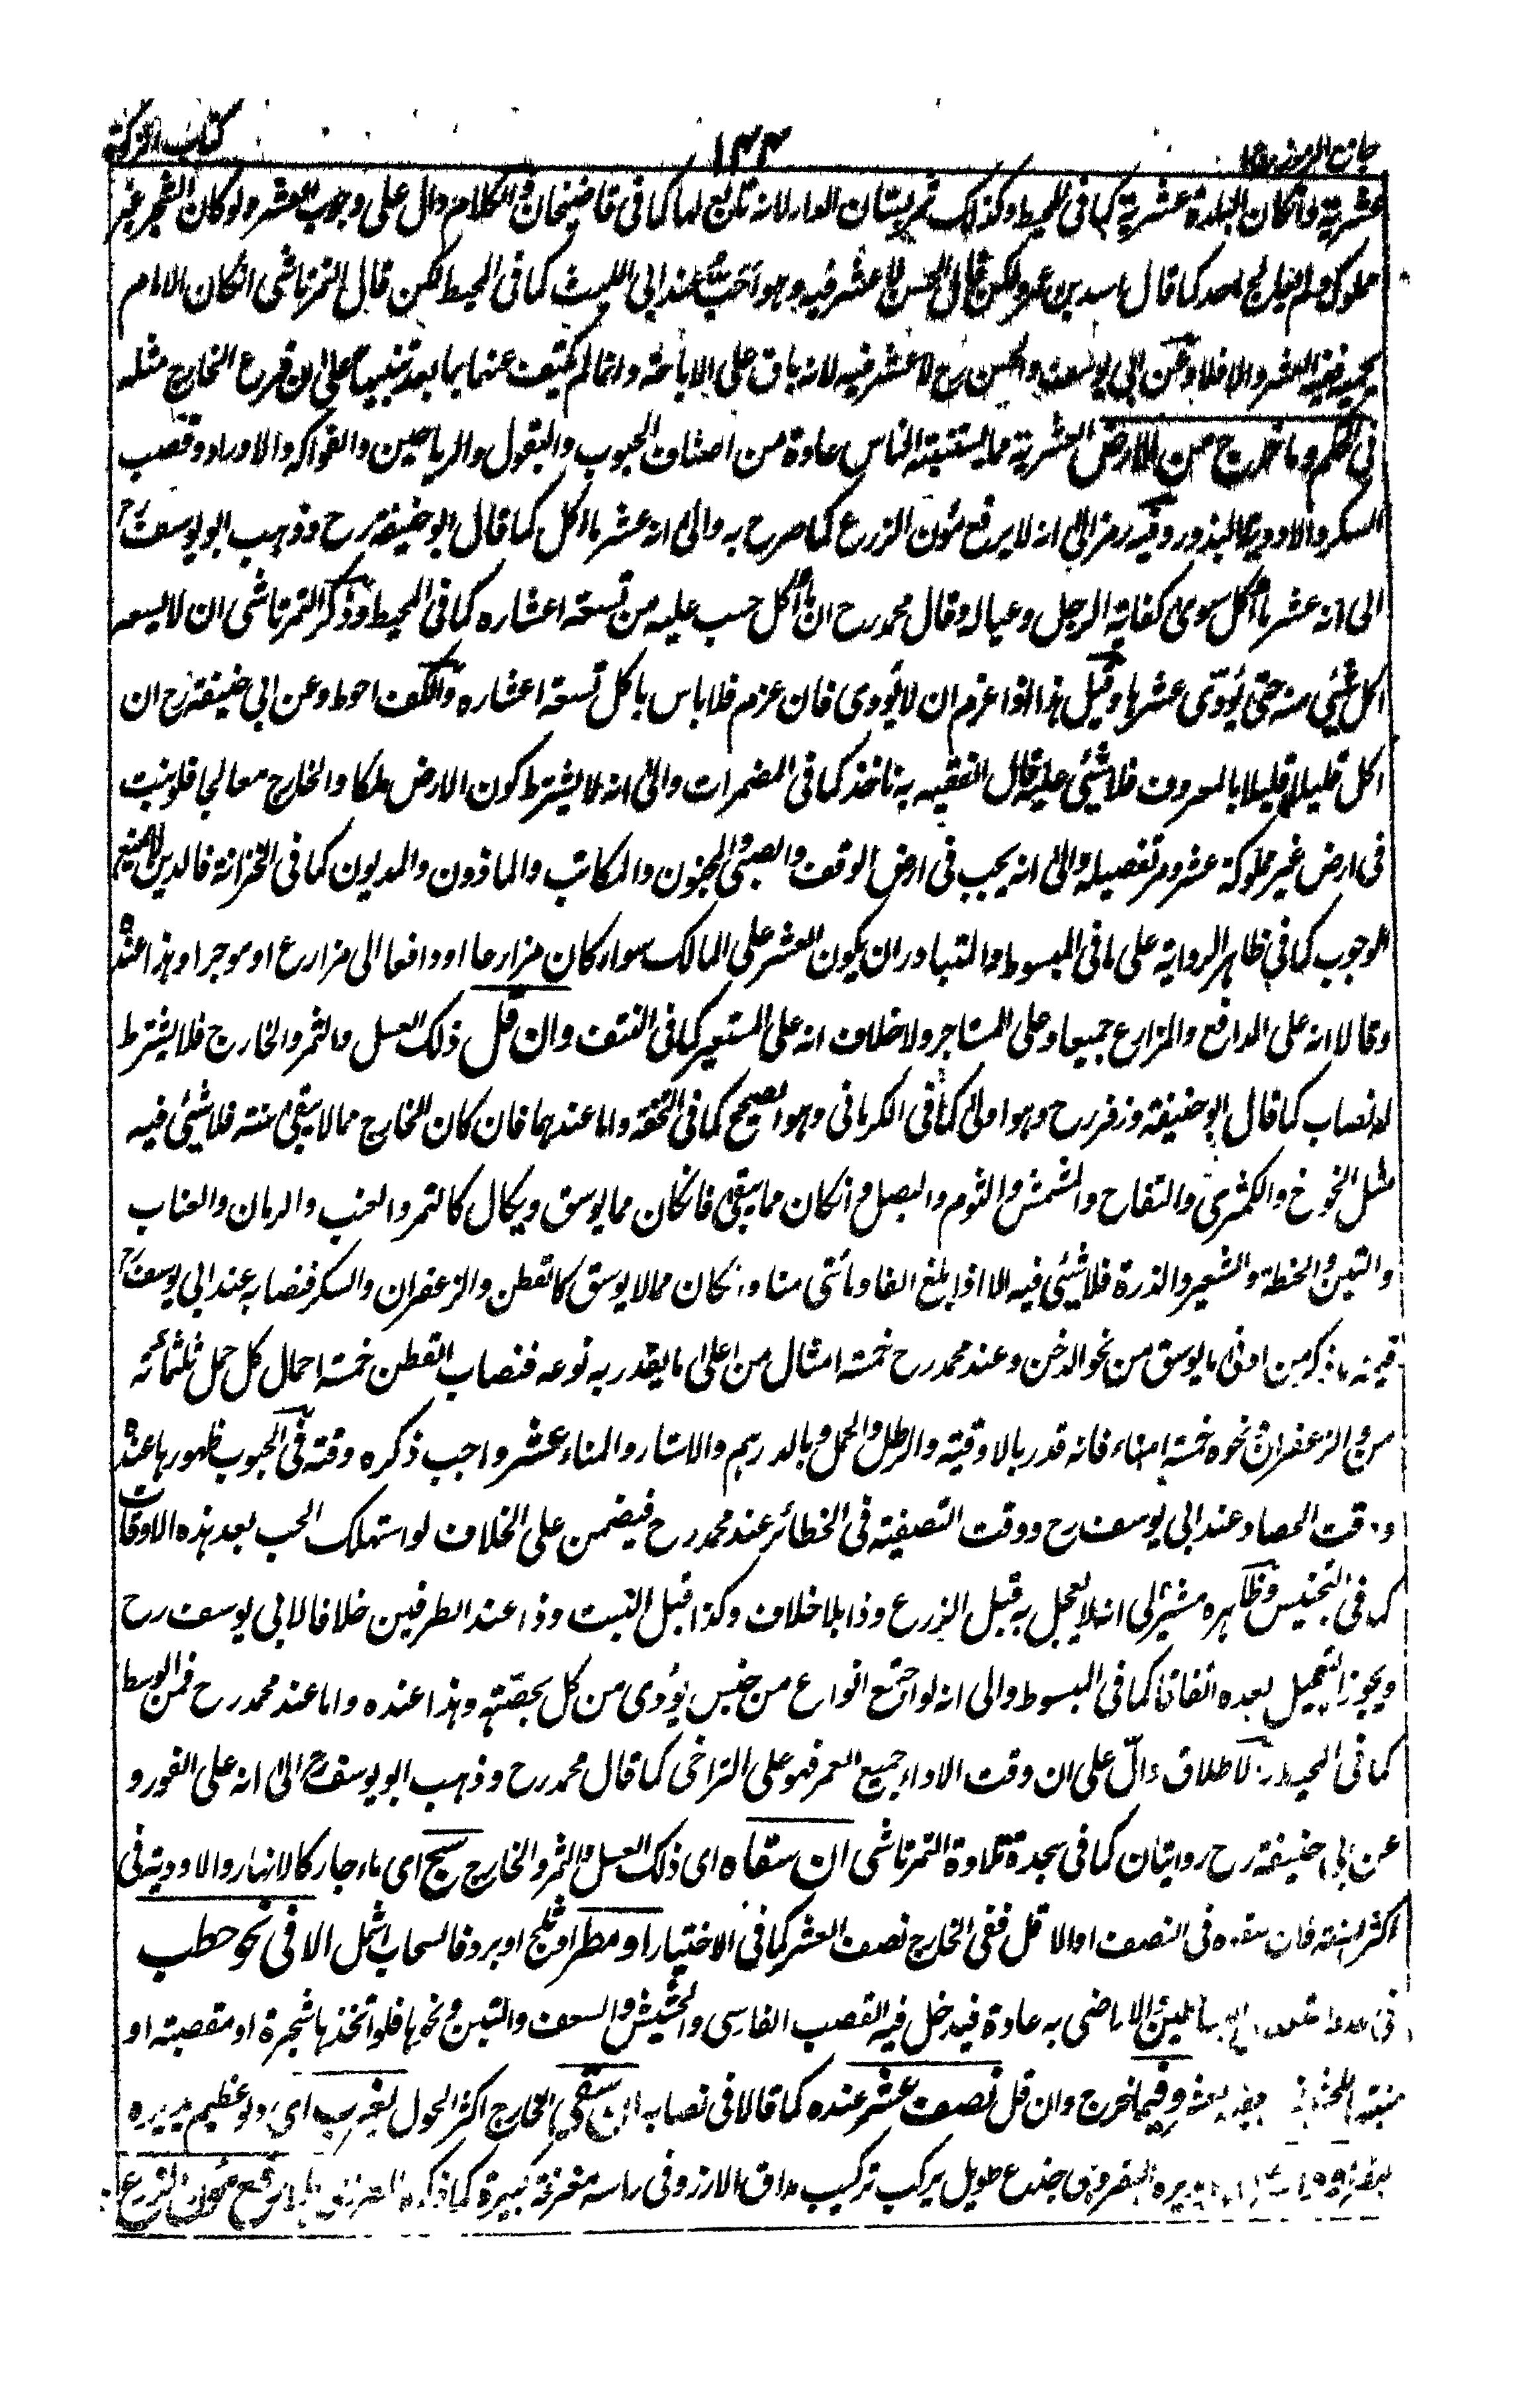 كتاب الزكوة ١٤٤ جامع الرموز
عشرية وان كان البلدة عشرية كما فى المحيط وكذلك ثمر بستان الدار لانه تابع لها كما فى قاضيخان فى الكلام دال على وجوب العشر ولو كان الشجر غير
مملوك ولم يعالج احد كما قال اسد بن عمرو لكن قال الحسن لا عشر فيه وهو احب عند ابى الليث كما فى المحيط لكن قال التمرتاشى انكان الامام
يحميه ففيه العشر والا فلا وعن ابى يوسف والحسن رح لا عشر فيه لانه باق على الاباحة وانما لم يكتف عنهما بما بعد تنبيها على ان فرع الخارج مثله
فى الحكم وما خرج من الارض العشرية مما يستنبته الناس عادة من اصناف الحبوب والبقول والرياحين والفواكه والاوراد وقصب
السكر والادوية كالبذور وفيه رمز الى انه لا يرفع مؤن الزرع كما صرح به والى انه عشر ما اكل كما قال ابو حنيفة رح وذهب ابو يوسف رح
الى انه عشر ما اكل سوى كفاية الرجل وعياله وقال محمد رح ان ما اكل حسب عليه من تسعة اعشاره كما فى المحيط وذكر التمرتاشى ان لا يسعه
اكل شيئ منه حتى يؤدى عشرها وقيل هذا اذا عزم ان لا يؤدى فان عزم فلا باس باكل تسعة اعشاره والكف احوط وعن ابى حنيفة رح ان
اكل قليلا قليلا بالمعروف فلا شيئ عليه قال الفقيه به ناخذ كما فى المضمرات والى انه لا يشترط كون الارض ملكا والخارج معالجا فلو نبت
فى ارض غير مملوكة عشر ومر تفصيله والى انه يجب فى ارض الوقف والصبى والمجنون والمكاتب والماذون والمديون كما فى الخزانة فالدين لا يمنع
الوجوب كما فى ظاهر الرواية على ما فى المبسوط والمتبادر ان يكون العشر على المالك سواء كان مزارعا او دافعا الى مزارع او موجرا وهذا عنده
وقالا انه على الدافع والمزارع جميعا وعلى المستاجر ولا خلاف انه على المستعير كما فى النتف وان قل ذلك العسل والثمر والخارج فلا يشترط
له نصاب كما قال ابو حنيفة وزفر رح وهو اولى كما فى الكرمانى وهو الصحيح كما فى التحفة واما عندهما فان كان الخارج مما لا يبقى سنة فلا شيئ فيه
مثل الخوخ والكمثرى والتفاح والمشمش والثوم والبصل وانكان مما يبقى فانكان مما يوسق ويكال كالتمر والعنب والرمان والعناب
والتين والحنطة والشعير والذرة فلا شيئ فيه الا اذا بلغ الفا ومأتى منا وانكان مما لا يوسق كالقطن والزعفران والسكر فنصابه عند ابى يوسف رح
قيمة ما ذكر من ادنى ما يوسق من نحو الدخن وعند محمد رح خمسة امثال من اعلى ما يقدر به نوعه فنصاب القطن خمسة احمال كل حمل ثلثمائة
من والزعفران نحوه خمسة امناء فانه قدر بالاوقية والرطل والحمل وبالدرهم والاستار والمناء عشر واجب ذكره وقته فى الحبوب ظهورها عنده
ووقت الحصاد عند ابى يوسف رح ووقت التصفية فى الحظائر عند محمد رح فيضمن على الخلاف لو استهلك الحب بعد هذه الاوقات
كما فى التجنيس وظاهره مشير الى انه لا يعجل به قبل الزرع وذا بلا خلاف وكذا قبل النبت وذا عند الطرفين خلافا لابى يوسف رح
ويجوز التعجيل بعده اتفاقا كما فى المبسوط والى انه لو اجتمع انواع من جنس يؤدى من كل بحصته وهذا عنده واما عند محمد رح فمن الوسط
كما فى المحيط والاطلاق دالّ على ان وقت الاداء جميع العمر فهو على التراخى كما قال محمد رح وذهب ابو يوسف رح الى انه على الفور و
عن ابى حنيفة رح روايتان كما فى سجدة تلاوة التمرتاشى ان سقاه اى ذلك العسل والثمر والخارج سيح اى ماء جار كالانهار والاودية فى
اكثر السنة فان سقوه فى النصف او الاقل ففى الخارج نصف العشر كما فى الاختيار او مطر او ثلج او برد فالسحاب اشمل الا فى نحو حطب
الاراضى به عادة فيدخل فيه القصب الفارسى والحشيش والسعف والتبن ونحوها فلو اتخذها شجرة او مقصبة او
وفيما خرج وان قل نصف عشر عنده كما قالا فى نصابه ان سقى الخارج اكثر الحول بغرب اى دلو عظيم يديره
جذع طويل يركب تركيب مداق الارز وفى راسه مغرفة كبيرة كما ذكره بلا رفع مؤن الزرع